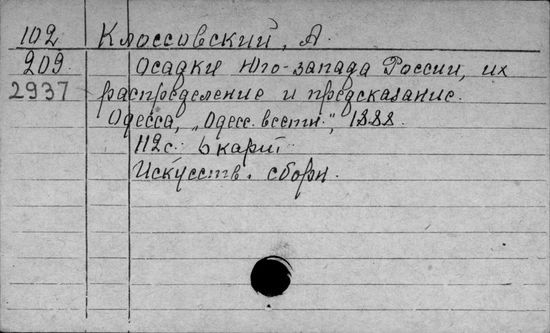 102 Клоссовский, А.
209 Осадки Юго-запада России, их
2937 распределение и предсказание.
Одесса, „Одесс. вестн.", 1888.
112 с. 6 карт
Искусств. сборн.